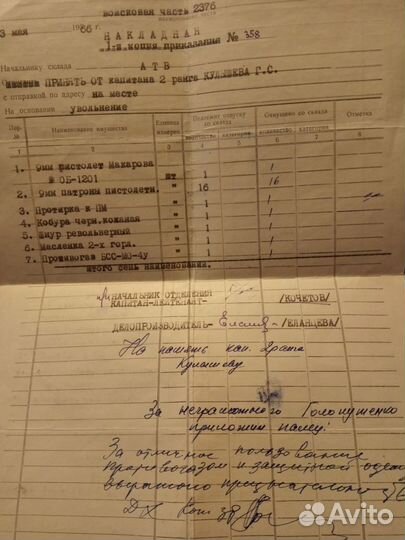 войсковая часть 2376
3 мая 1986 г НАКЛАДНАЯ № 358
копия приказания
Начальнику склада АТВ
ПРИНЯТЬ ОТ капитана 2 ранга КУЛЫШЕВА Г.С.
с отправкой по адресу на месте
На основании увольнение
Наименование имущества Единица измерен. Подлежит отпуску со склада Отпущено со склада Отметка
количество категория количество категория
1 2 3 4 5 6 7 8
1. 9мм пистолет Макарова
№ ОБ-1201 шт 1 1
2. 9мм патроны пистолетн. " 16 16
3. Протирка к ПМ " 1 1
4. Кобура черн.кожаная " 1 1
5. Шнур револьверный " 1 1
6. Масленка 2-х горл. " 1 1
7. Противогаз БСС-МО-4у " 1 1
итого семь наименований.
НАЧАЛЬНИК ОТДЕЛЕНИЯ
КАПИТАН-ЛЕЙТЕНАНТ- /КОЧЕТОВ/
ДЕЛОПРОИЗВОДИТЕЛЬ- /ЕЛАНЦЕВА/
На память кап. 2ранга
Кулышеву
За неграмотного
приложил палец!
За отличное пользование
противогазом и защитной
Avito